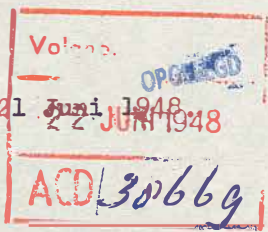 Volgno.
OPGELEGD
21 Juni 1948.
22 JUNI 1948
ACD 38669